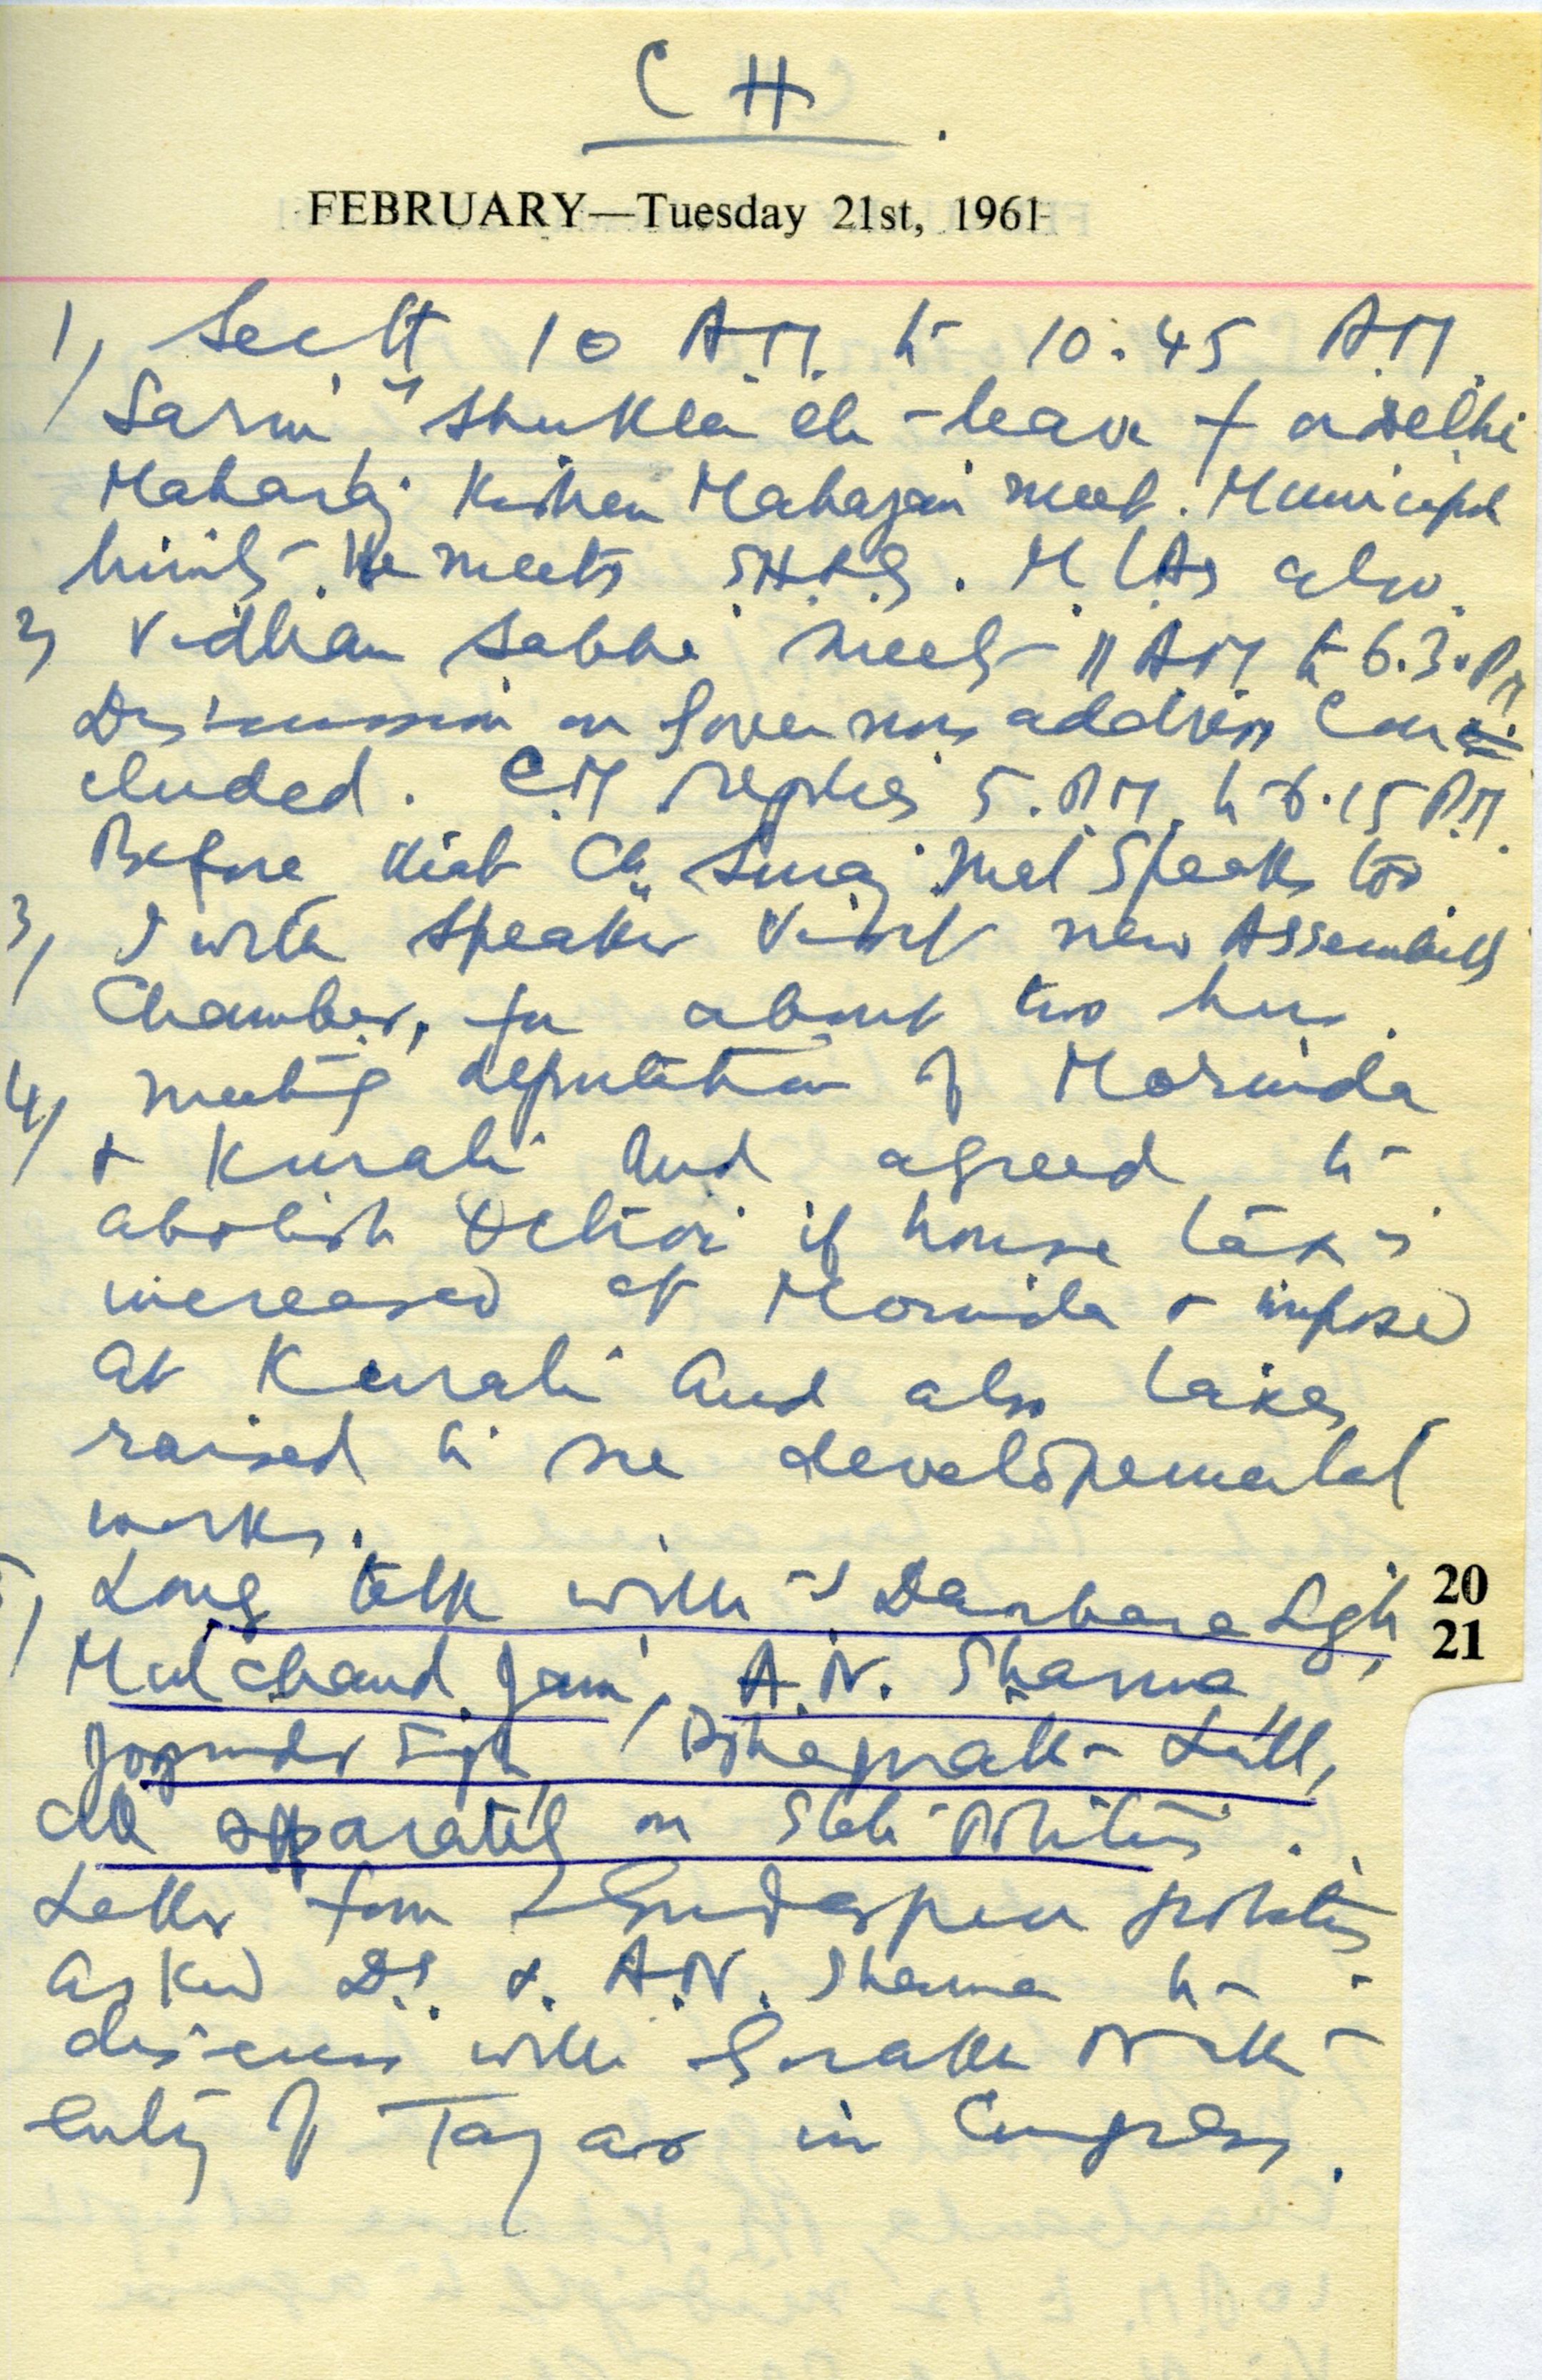 C H.
FEBRUARY—Tuesday 21st, 1961
1) Sectt 10 A.M. to 10:45 A.M.
Sarin, Shukla leave for Delhi
Maharaj Kishen Mahajan meet. Municipal
limits. He meets M.L.As also.
2) Vidhan Sabha meets 11 AM to 6.30 PM
Discussion on Governors address Con=
cluded. C.M replies 5.P.M. to 6.15 P.M.
Before that Ch. Suraj Mal Speaks too.
3) I with Speaker Visit new Assembly
Chamber, for about two hrs.
4) meeting deputation of Morinda
+ Kurali And agreed to
abolish Octroi if house tax is
increased at Morinda + imposed
at Kurali And also taxes
raised to see developemental
works.
5) Long talk with S Darbara Sgh,
Mulchand Jain, A.N. Sharma
Jogender Singh, Bhagwat Lall,
all separately on State Politics.
Letter from Gurdaspur politics
Asked D.S. + A.N. Sharma to
discuss with Gorakh Nath
entry of in Congress.
20
21